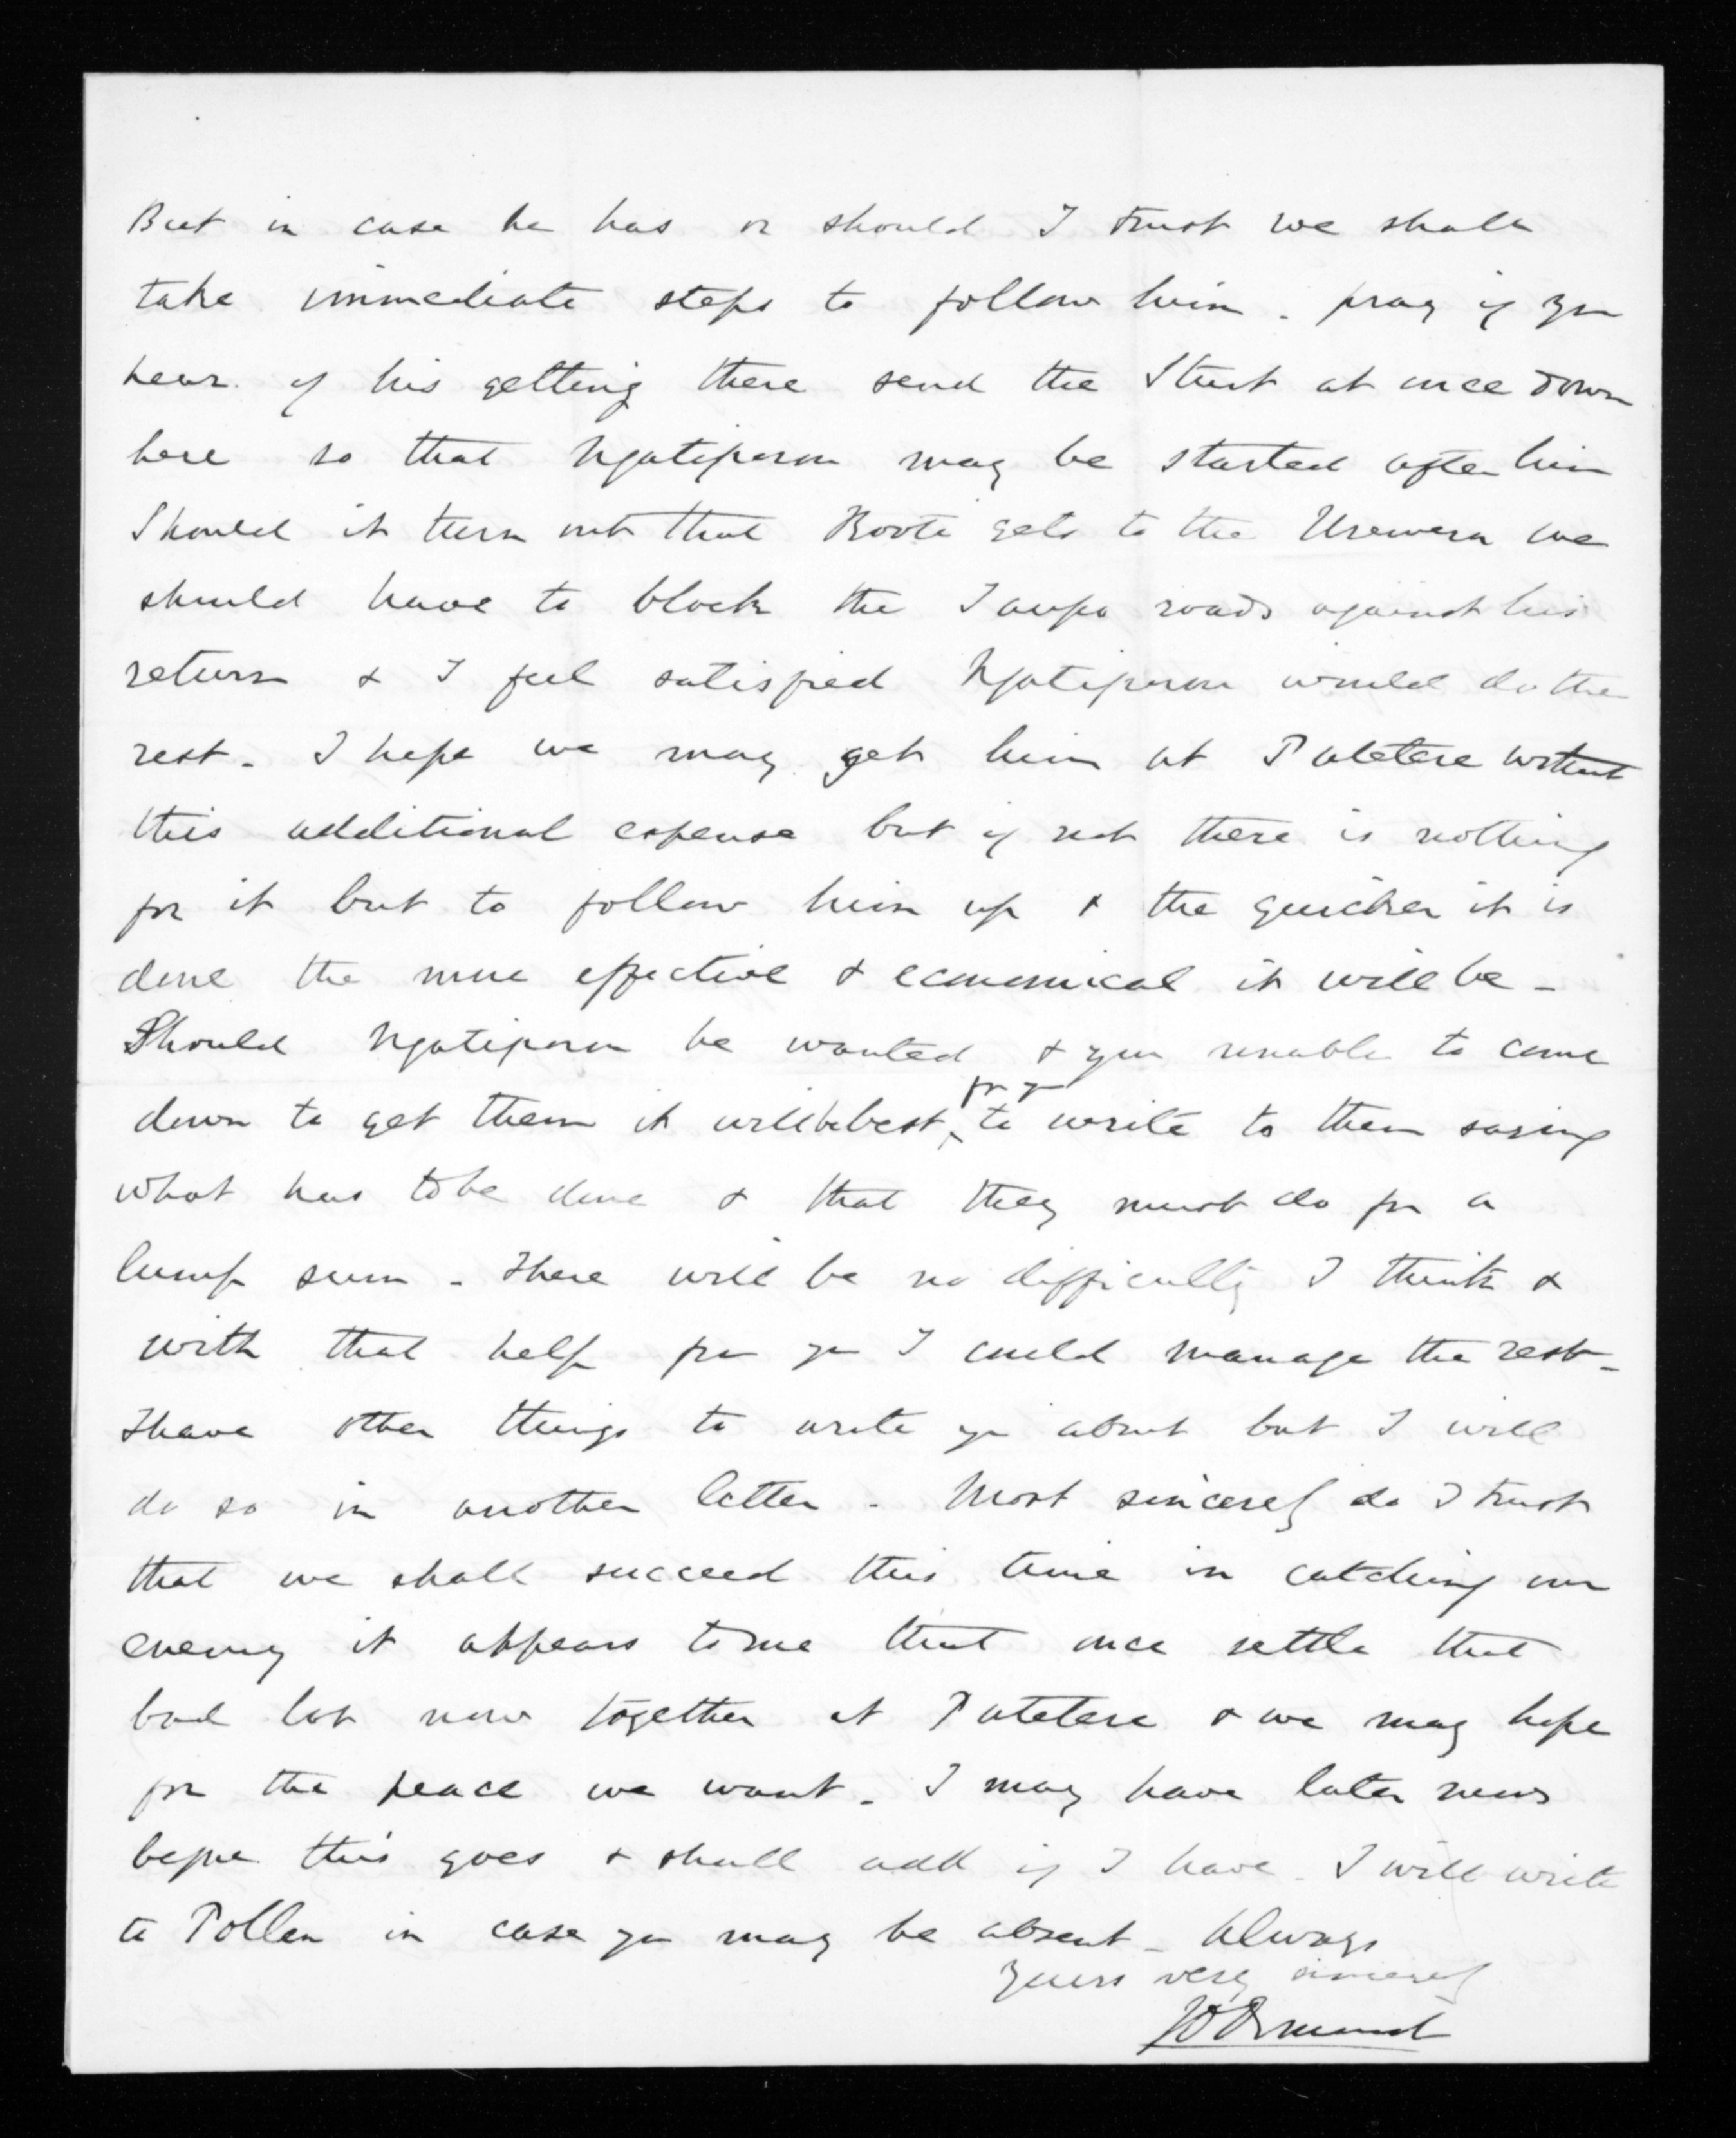 But in case he has or should I trust we shall
take immediate steps to follow him - pray if you
hear of his getting there send the Sturt at once down
here so that Ngatiporou may be started after him
Should it turn out that Kooti gets to the Urewera we
should have to block the Taupo roads against his
return & I feel satisfied Ngatiporou would do the
rest - I hope we may get him at Patetere without
this additional expense but if not there is nothing
for it but to follow him up & the quicker it is
done the more effective & economical it will be -
Should Ngatiporou be wanted & you unable to come
down to get them it will be best for you to write to them saying
what has to be done & that they must do for a
lump sum - There will be no difficulty I think &
with that help from you I could manage the rest -
I have other things to write you about but I will
do so in another letter - Most sincerely do I trust
that we shall succeed this time in catching our
enemy it appears to me that once settle that
bad lot now together at Patetere & we may hope
for the peace we want - I may have later news
before this goes & shall add if I have - I will write
to Pollen in case you may be absent - Always
Yours very sincerely
JD Ormond